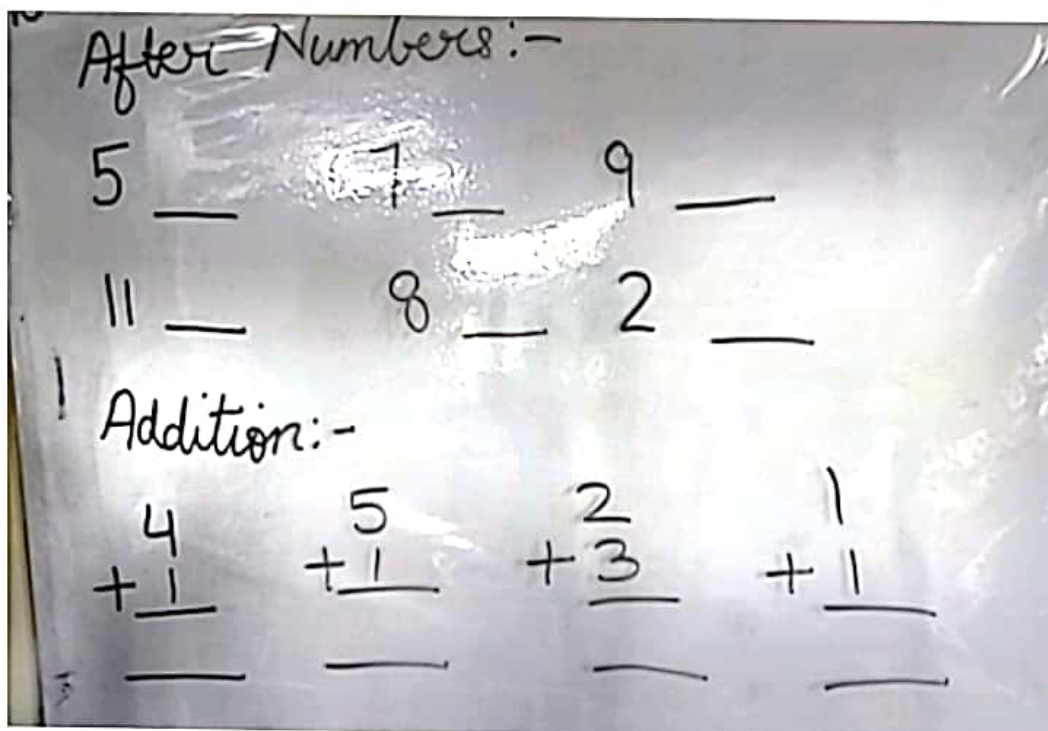 After Numbers:-
5 __ 7 __ 9 __
11 __ 8 __ 2 __
Addition:-
4 5 2 1
+1 +1 +3 +1
__ __ __ __